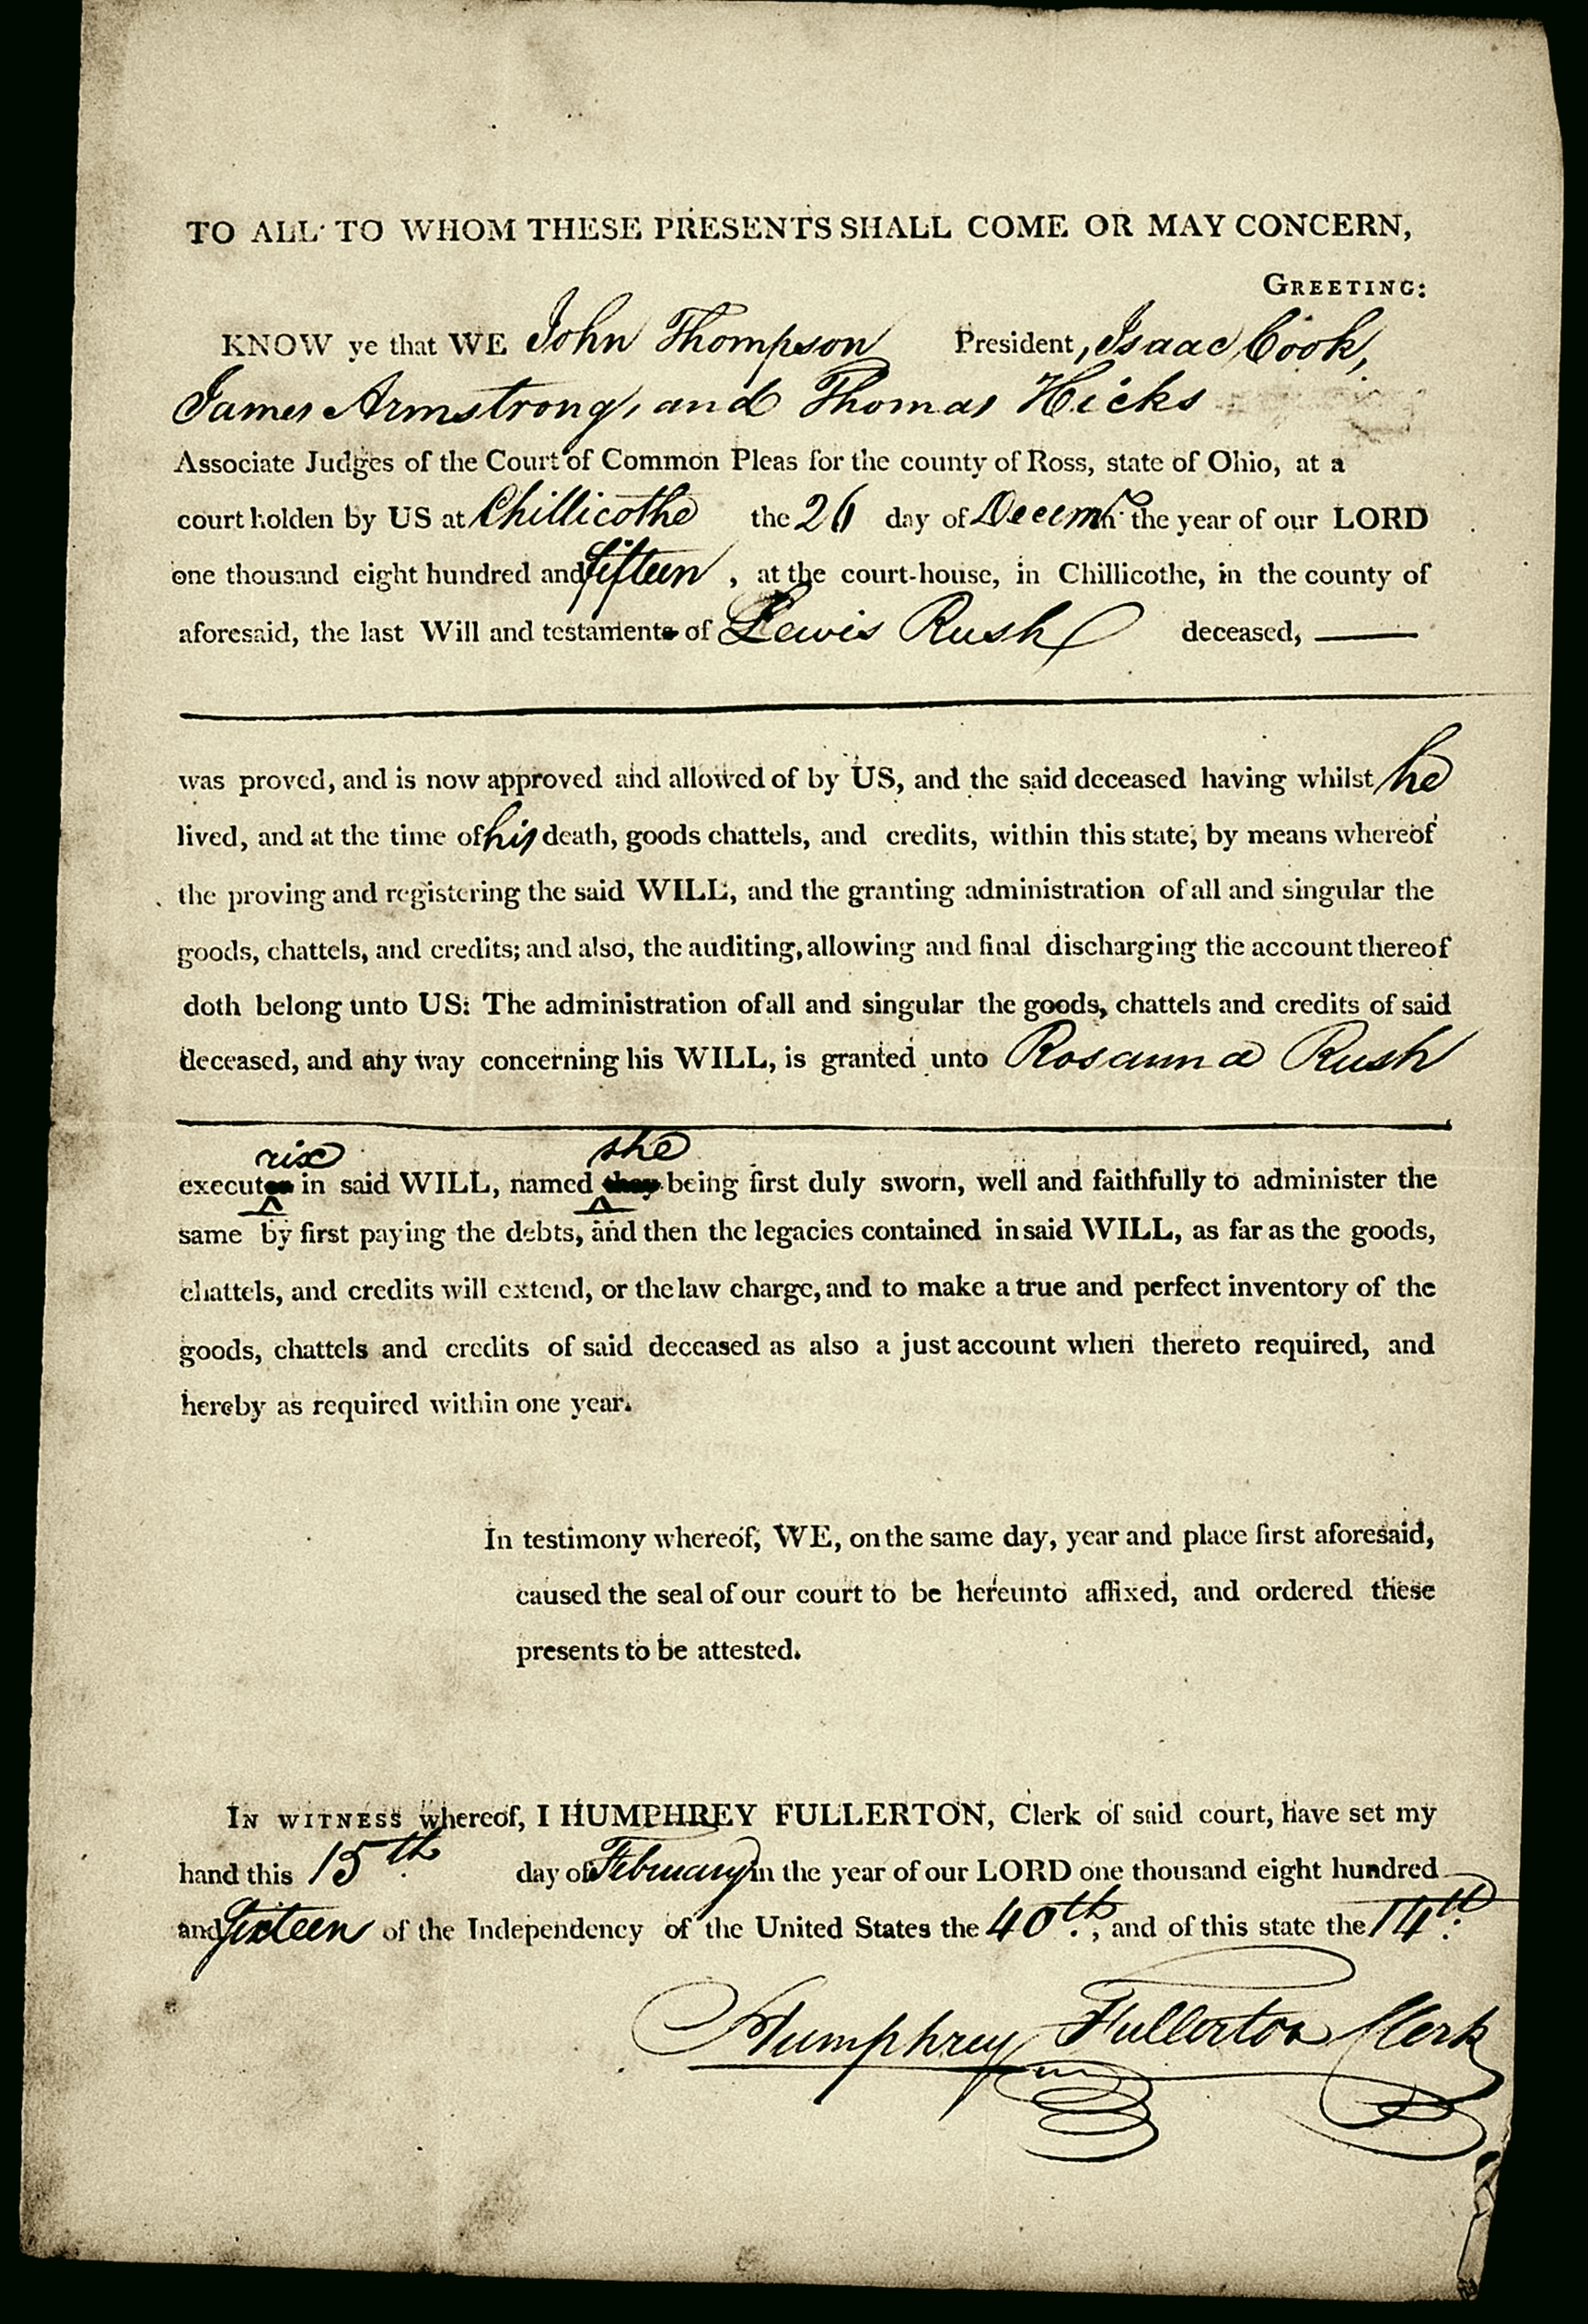 TO ALL TO WHOM THESE PRESENTS SHALL COME OR MAY CONCERN,
GREETING:
KNOW ye that WE John Thompson President, Isaac Cook,
James Armstrong, and Thomas Hicks
Associate Judges of the Court of Common Pleas for the county of Ross, state of Ohio, at a
court holden by US at Chillicothe the 26 day of Decemr. the year of our LORD
one thousand eight hundred and fifteen, at the court-house, in Chillicothe, in the county of
aforesaid, the last Will and testament of Lewis Rush deceased,
was proved, and is now approved and allowed of by US, and the said deceased having whilst he
lived, and at the time of his death, goods chattels, and credits, within this state, by means whereof
the proving and registering the said WILL, and the granting administration of all and singular the
goods, chattels, and credits; and also, the auditing, allowing and final discharging the account thereof
doth belong unto US: The administration of all and singular the goods, chattels and credits of said
deceased, and any way concerning his WILL, is granted unto Rosanna Rush
rix she
execut in said WILL, named they being first duly sworn, well and faithfully to administer the
same by first paying the debts, and then the legacies contained in said WILL, as far as the goods,
chattels, and credits will extend, or the law charge, and to make a true and perfect inventory of the
goods, chattels and credits of said deceased as also a just account when thereto required, and
hereby as required within one year.
In testimony whereof, WE, on the same day, year and place first aforesaid,
caused the seal of our court to be hereunto affixed, and ordered these
presents to be attested.
IN WITNESS whereof, I HUMPHREY FULLERTON, Clerk of said court, have set my
hand this 15th day of February in the year of our LORD one thousand eight hundred
and Sixteen of the Independency of the United States the 40th, and of this state the 14th.
Humphrey Fullerton Clerk